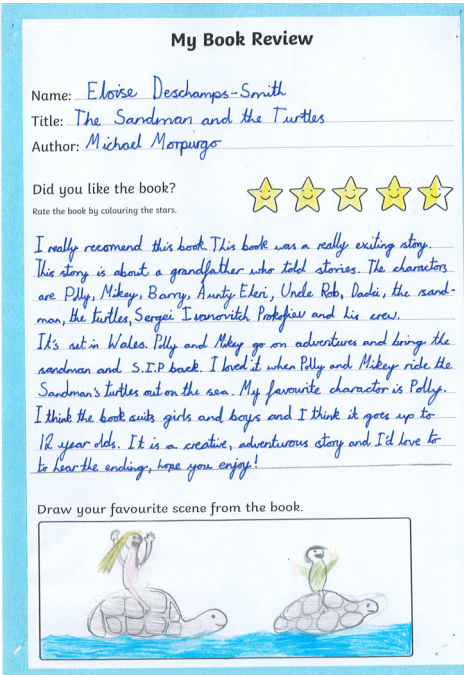 My Book Review
Name: Eloise Deschamps-Smith
Title: The Sandman and the Turtles
Author: Michael Morpurgo
Did you like the book?
Rate the book by colouring the stars.
I really recomend this book. This book was a really exiting story.
This story is about a grandfather who told stories. The charactors
are Polly, Mikey, Barry, Aunty Eleri, Uncle Rob, Dadci, the sand-
man, the turtles, Sergei Ivanovitch Prokofiev and his crew.
It's set in Wales. Polly and Mikey go on adventures and bring the
sandman and S.I.P back. I loved it when Polly and Mikey ride the
Sandman's turtles out on the sea. My favourite charactor is Polly.
I think the book suits girls and boys and I think it goes up to
12 year olds. It is a creative, adventurous story and I'd love to
to hear the ending, hope you enjoy!
Draw your favourite scene from the book.